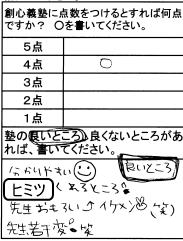 創心義塾に点数をつけるとすれば何点
ですか？ ○を書いてください。
5点
4点 ○
3点
2点
1点
塾の良いところ、良くないところがあ
れば、書いてください。
わかりやすい 良いところ
ヒミツ なところ
先生おもろい イケメン (笑)
先生若干変 笑